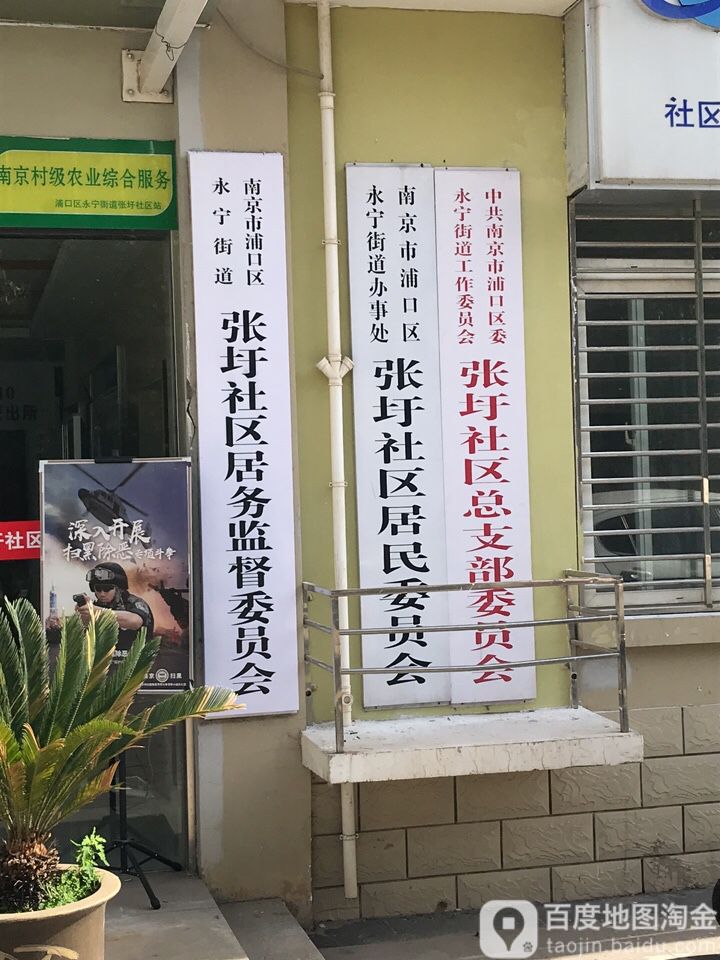 社区
南京村级农业综合服务
浦口区永宁街道张圩社区站
南京市浦口区
永宁街道
张圩社区居务监督委员会
南京市浦口区
永宁街道办事处
张圩社区居民委员会
中共南京市浦口区委
永宁街道工作委员会
张圩社区总支部委员会
深入开展
扫黑除恶专项斗争
社区
百度地图淘金
taojin.baidu.com